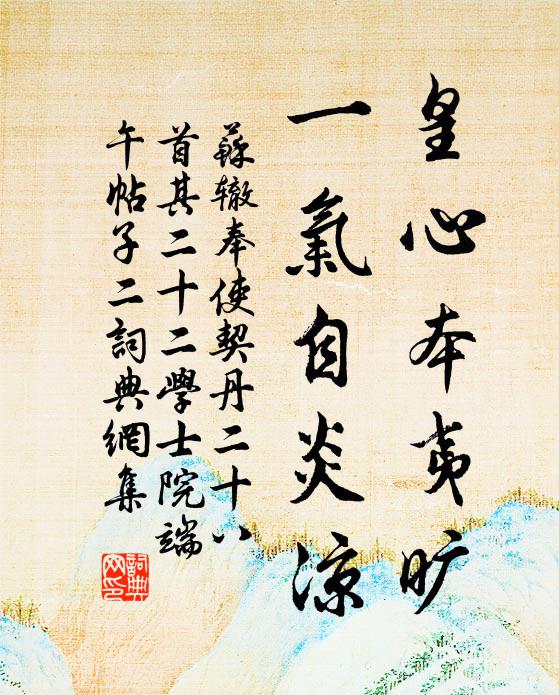 皇心本夷旷
一氣自炎涼
蘇辙奉使契丹二十八
首其二十二學士院端
午帖子二詞典網集
詞典
网印